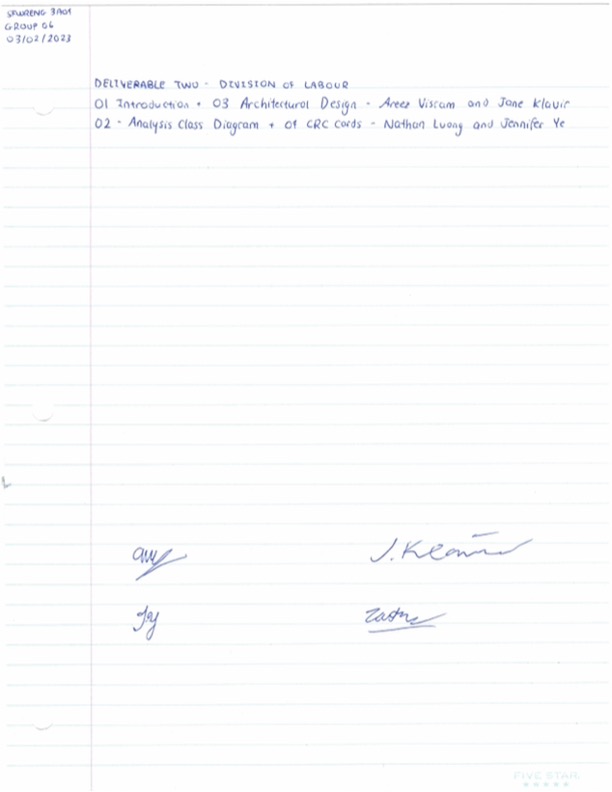 GROUP 06
03/02/2023
DELIVERABLE TWO - DIVISION OF LABOUR
01 Introduction + 03 Architectural Design - Areez Visram and Jane Klavir
02 - Analysis Class Diagram + 04 CRC Cards - Nathan Luong and Jennifer Ye
J. Klavir
FIVE STAR